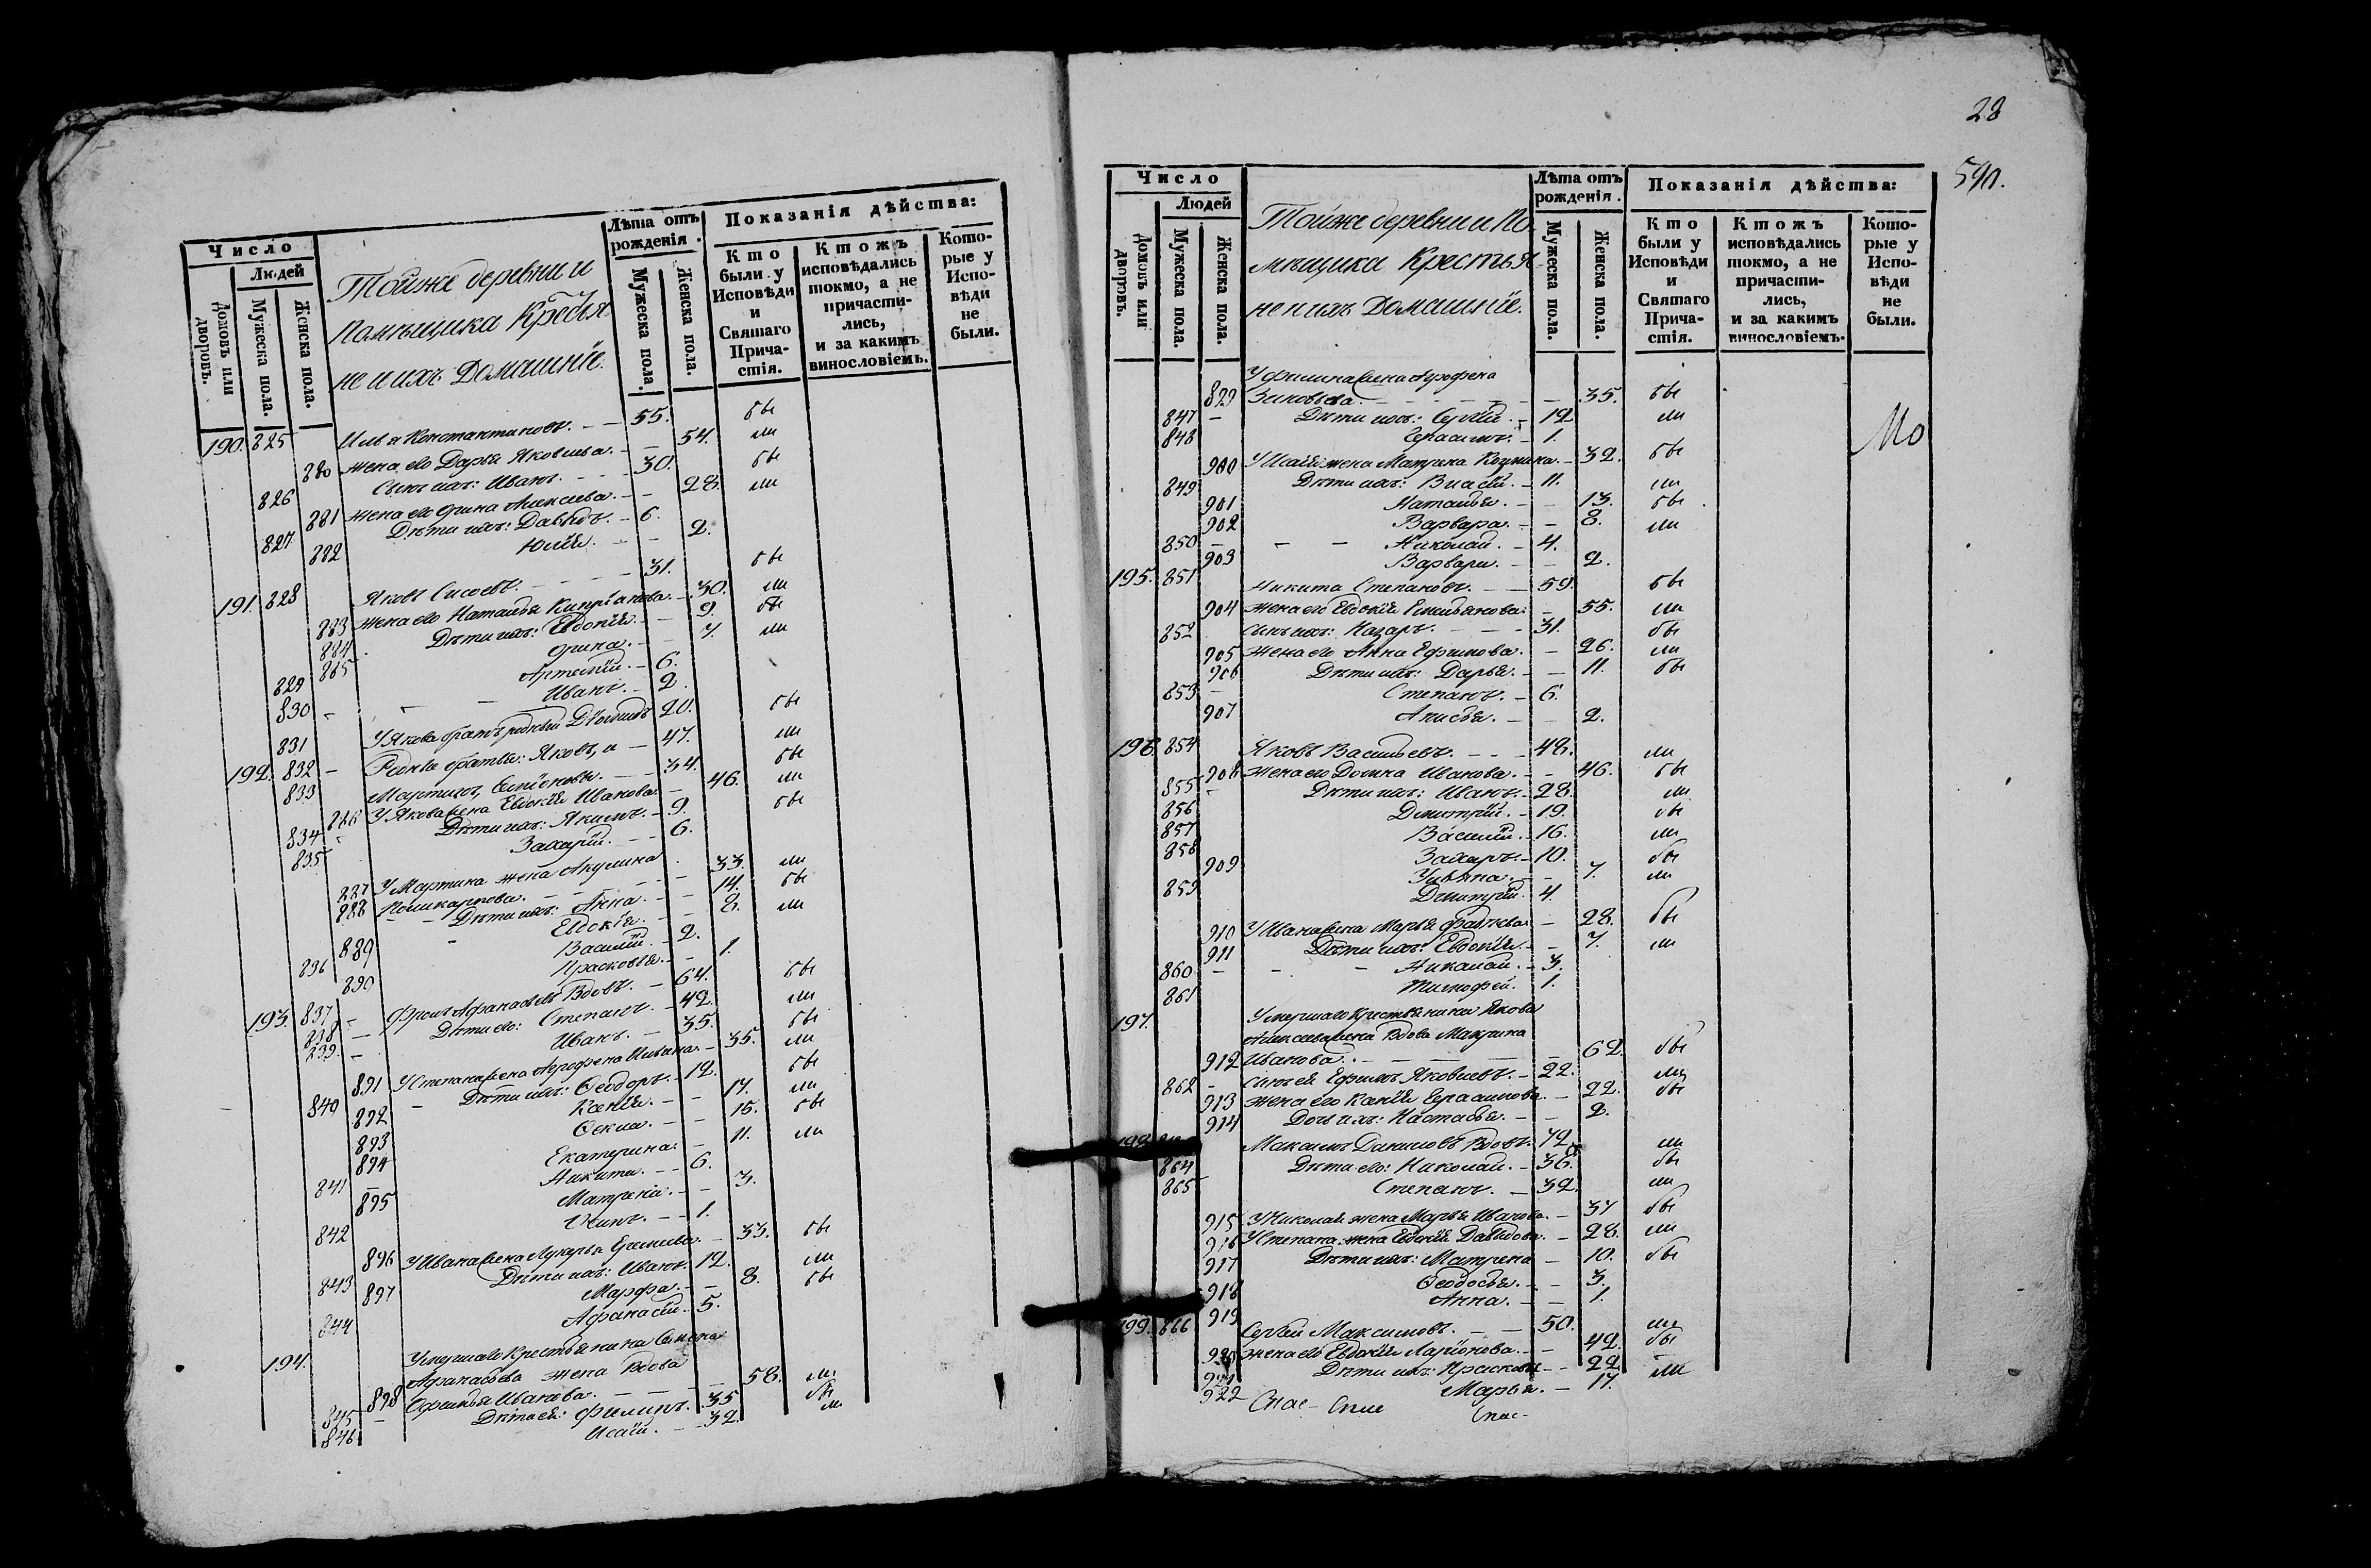 Число
Людей
Домовъ или дворовъ.
Мужеска пола.
Женска пола.
Тойже деревни и
Помѣщика Крестья
не и ихъ Домашнїе.
Лѣта отъ рожденія.
Мужеска пола.
Женска пола.
Показанія дѣйства:
Кто были у Исповѣди и Святаго Причастія.
Ктожъ исповѣдались токмо, а не причастились, и за какимъ винословіемъ.
Которые у Исповѣди не были.
190. 825 Илья Константиновъ. 55. бы
880 жена его Дарья Яковлева. 54. ли
826 Сынъ ихъ: Иванъ. 30. бы
881 жена его Ѳрина Алексѣева. 28. ли
827 Дѣти ихъ: Давыдъ. 6.
882 Юлія. 2.
191. 828 Яковъ Сисоевъ. 31. бы
883 жена его Наталья Кипрїанова. 30. ли
884 Дѣти ихъ: Евдокїя. 9. бы
885 Ѳрина. 7. ли
829 Артемїй. 6.
830 Иванъ. 2.
831 У Якова братъ родный 20. бы
192. 832 Родные братья: Яковъ, и 47. ли
833 Мартинъ, Семїоновы. 34. бы
886 У Якова жена Евдокїя Иванова. 46. ли
834 Дѣти ихъ: Якимъ. 9. бы
835 Захарїй. 6.
У Мартина жена Акулина
887 Поликарпова. 33 ли
888 Дѣти ихъ: Анна. 14. бы
889 Евдокїя. 8. ли
836 Василїй. 2.
890 Прасковья. 1.
193. 837 Фролъ Афанасьевъ Вдовъ. 64. бы
838 Дѣти его: Степанъ. 42. ли
839. Иванъ. 35. бы
891 У Степана жена Агрофена 35. ли
840 Дѣти ихъ: Ѳеодоръ. 12. бы
892 Ксенїя. 17. ли
893 Ѳекла. 15. бы
894 Екатерина. 11. ли
841 Никита. 6.
895 Матрена. 3.
842 Осипъ. 1.
896 У Ивана жена Лукерья 33. бы
843 Дѣти ихъ: Иванъ. 12. ли
897 Марфа. 8. бы
844 Афанасїй. 5.
194. Умершаго Крестьянина Семена
Афанасьева жена Вдова
898 Иванова. 58. ли
845 Дѣти ея: Филипъ. 35 бы
846 Исай. 32. ли
28
590.
Число
Людей
Домовъ или дворовъ.
Мужеска пола.
Женска пола.
Тойже деревни и По
мѣщика Крестья
не и ихъ Домашнїе.
Лѣта отъ рожденія.
Мужеска пола.
Женска пола.
Показанія дѣйства:
Кто были у Исповѣди и Святаго Причастія.
Ктожъ исповѣдались токмо, а не причастились, и за какимъ винословіемъ.
Которые у Исповѣди не были.
У Филипа жена Агрофена
899 Зиновьева. 35. бы
847 Дѣти ихъ: Сергѣй. 12 ли
848 Герасимъ. 1.
900 У Исаїя жена Матрена Козмина. 32. бы
849 Дѣти ихъ: Власїй. 11. ли
901 Наталья. 13. бы
902 Варвара. 8. ли
850 Николай. 4.
903 Варвара. 2.
195. 851 Никита Степановъ. 59. бы
904 жена его Евдокїя Емельянова. 55. ли
852 сынъ ихъ: Назаръ. 31. бы
905 жена его Анна Ефимова. 26. ли
906 Дѣти ихъ: Дарья. 11. бы
853 Степанъ. 6.
907 Анисья. 2.
196. 854 Яковъ Васильевъ. 48. ли
908 жена его Домна Иванова. 46. бы
855 Дѣти ихъ: Иванъ. 28. ли
856 Димитрїй. 19. бы
857 Василїй. 16. ли
858 Захаръ. 10. бы
909 Ульяна. 7. ли
859 Димитрїй. 4.
910 У Ивана жена Марья 28. бы
911 Дѣти ихъ: Евдокїя. 7. ли
860 Николай. 3.
861 Тимофей. 1.
197. Умершаго Крестьянина Якова
Алексѣева жена Вдова Матрина
912 Иванова. 62. бы
862 сынъ ея Ефимъ Яковлевъ. 22. ли
913 жена его Ксенїя Герасимова. 22. бы
914 Дочь ихъ: Настасья. 2.
198. Максимъ Даниловъ Вдовъ. 72. ли
864 Дѣти его: Николай. 36. бы
865 Степанъ. 32. ли
915 У Николая жена Марья Иванова. 37 бы
916 У Степана жена Евдокїя Давыдова. 28. ли
917 Дѣти ихъ: Матрена 10. бы
918 Ѳеодосья. 3.
919 Анна. 1.
199. 866 Сергѣй Максимовъ. 50. ли
920 жена его Евдокїя Ларїонова. 42. бы
921 Дѣти ихъ: Прасковья 22. ли
922 Марья. 17.